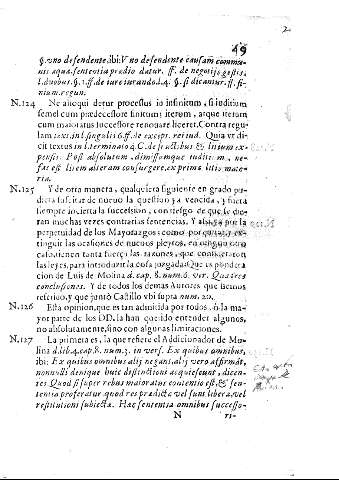 49
§. vno defendente, ibi: Vno defendente causam commu-
nis aquæ sententia prædio datur. ff. de negotijs gestis,
l. duobus. §. 1. ff. de iure iurando. l. 4. §. si dicantur. ff. fi-
nium regun.
N.124 Ne alioqui detur processus in infinitum, si iudicium
semel cum prædecessore finitum; iterum, atque iterum
cum maioratus successore renouare liceret. Contra regu-
lam text. in l. singulis 6. ff. de except. rei iud. Quia vt di-
cit textus in l. terminato 4. C. de fructibus & litium ex-
pensis. Post absolutum, dimissumque iuditiũ, ne-
fas est litem alteram consurgere, ex prima litis mate-
ria.
N.125 Y de otra manera, qualquiera siguiente en grado po-
dria suscitar de nueuo la question ya vencida, y fuera
siempre incierta la succession, con riesgo de que se die-
ran muchas vezes contrarias sentencias. Y assi por la
perpetuidad de los Mayorazgos: como por quitar, y ex-
tinguir las ocasiones de nueuos pleytos, en ningun otro
caso tienen tanta fuerça las razones, que considerarõ
las leyes, para introducir la cosa juzgada: Que es pondera
cion de Luis de Molina d. cap. 8. num. 6. ver. Quæ res
conclusiones. Y de todos los demas Autores que hemos
referido, y que juntò Castillo vbi supra num. 20.
N.126 Esta opinion, que es tan admitida por todos, ò la ma-
yor parte de los DD. la han querido entender algunos,
no absolutamente, sino con algunas limitaciones.
N.127 La primera es, la que refiere el Addicionador de Mo-
lina d. lib. 4. cap. 8. num. 3. in vers. Ex quibus omnibus,
ibi: Ex quibus omnibus alij negant, alij vero affirmãt,
nonnulli denique huic distinctioni acquiescunt, dicen-
tes Quod si super rebus maioratus contentio est, & sen-
tentia proferatur quod res prædictæ vel sunt liberæ, vel
restitutioni subiectæ. Hæc sententia omnibus successo-
N ri-